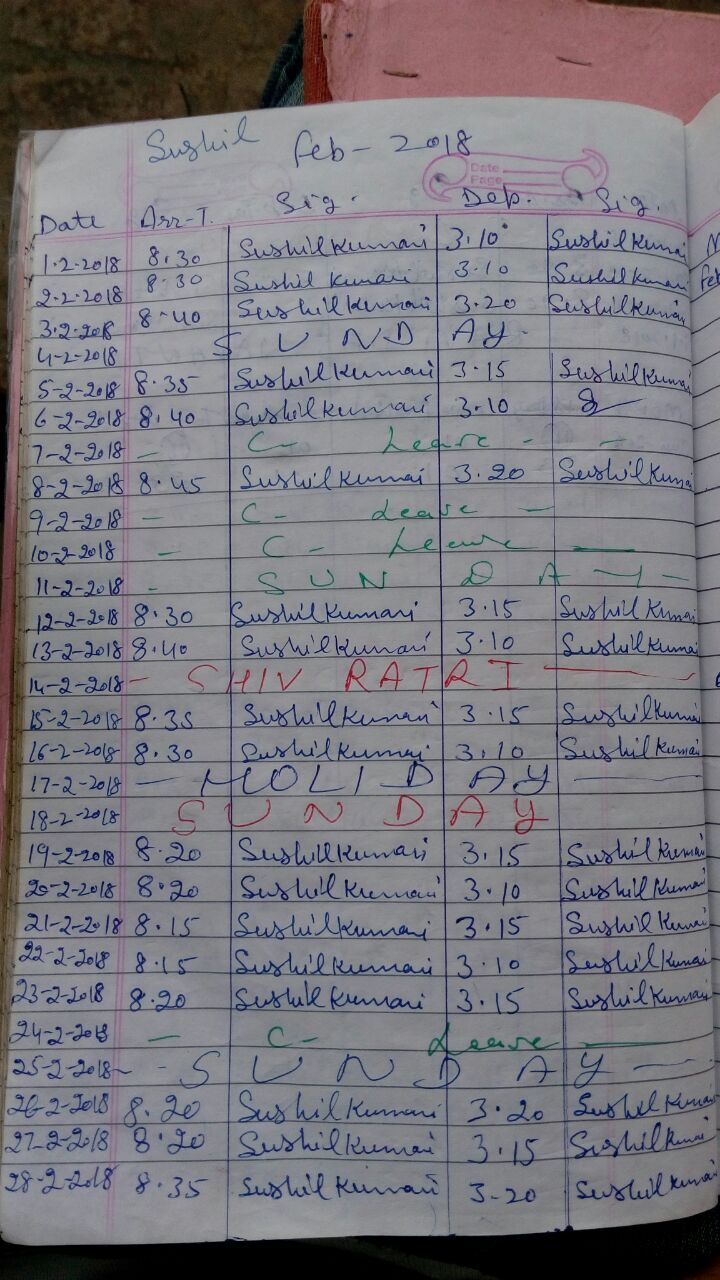 Sushil Feb - 2018
Date
Page
Date Arr-T. Sig. Dep. Sig.
1.2-2018 8.30 Sushil Kumari 3.10 Sushil Kumai
2.2-2018 8.30 Sushil Kumari 3.10 Sushil Kumari
3.2.2018 8-40 Sushil Kumari 3.20 Sushil Kumari
4-2-2018 S U N D A Y.
5-2-2018 8.35 Sushil Kumari 3.15 Sushil Kumai
6-2-2018 8.40 Sushil Kumari 3.10
7-2-2018 - C- Leave - -
8-2-2018 8.45 Sushil Kumai 3.20 Sushil Kumai
9-2-2018 - C- Leave -
10-2-2018 - C- Leave -
11-2-2018 - S U N D A Y -
12-2-2018 8.30 Sushil Kumari 3.15 Sushil Kumai
13-2-2018 8.40 Sushil Kumari 3.10 Sushil Kumai
14-2-2018 - SHIV RATRI -
15-2-2018 8.35 Sushil Kumari 3.15 Sushil Kumai
16-2-2018 8.30 Sushil Kumai 3.10 Sushil Kumari
17-2-2018 - HOLID AY -
18-2-2018 S U N D A Y
19-2-2018 8.20 Sushil Kumari 3.15 Sushil Kumai
20-2-2018 8.20 Sushil Kumari 3.10 Sushil Kumai
21-2-2018 8.15 Sushil Kumari 3.15 Sushil Kumai
22-2-2018 8.15 Sushil Kumari 3.10 Sushil Kumai
23-2-2018 8.20 Sushil Kumari 3.15 Sushil Kumai
24-2-2018 - C- Leave -
25-2-2018 - - S U N D A Y -
26-2-2018 8.20 Sushil Kumari 3.20 Sushil Kumai
27-2-2018 8.20 Sushil Kumari 3.15 Sushil Kumai
28-2-2018 8.35 Sushil Kumari 3-20 Sushil Kumai